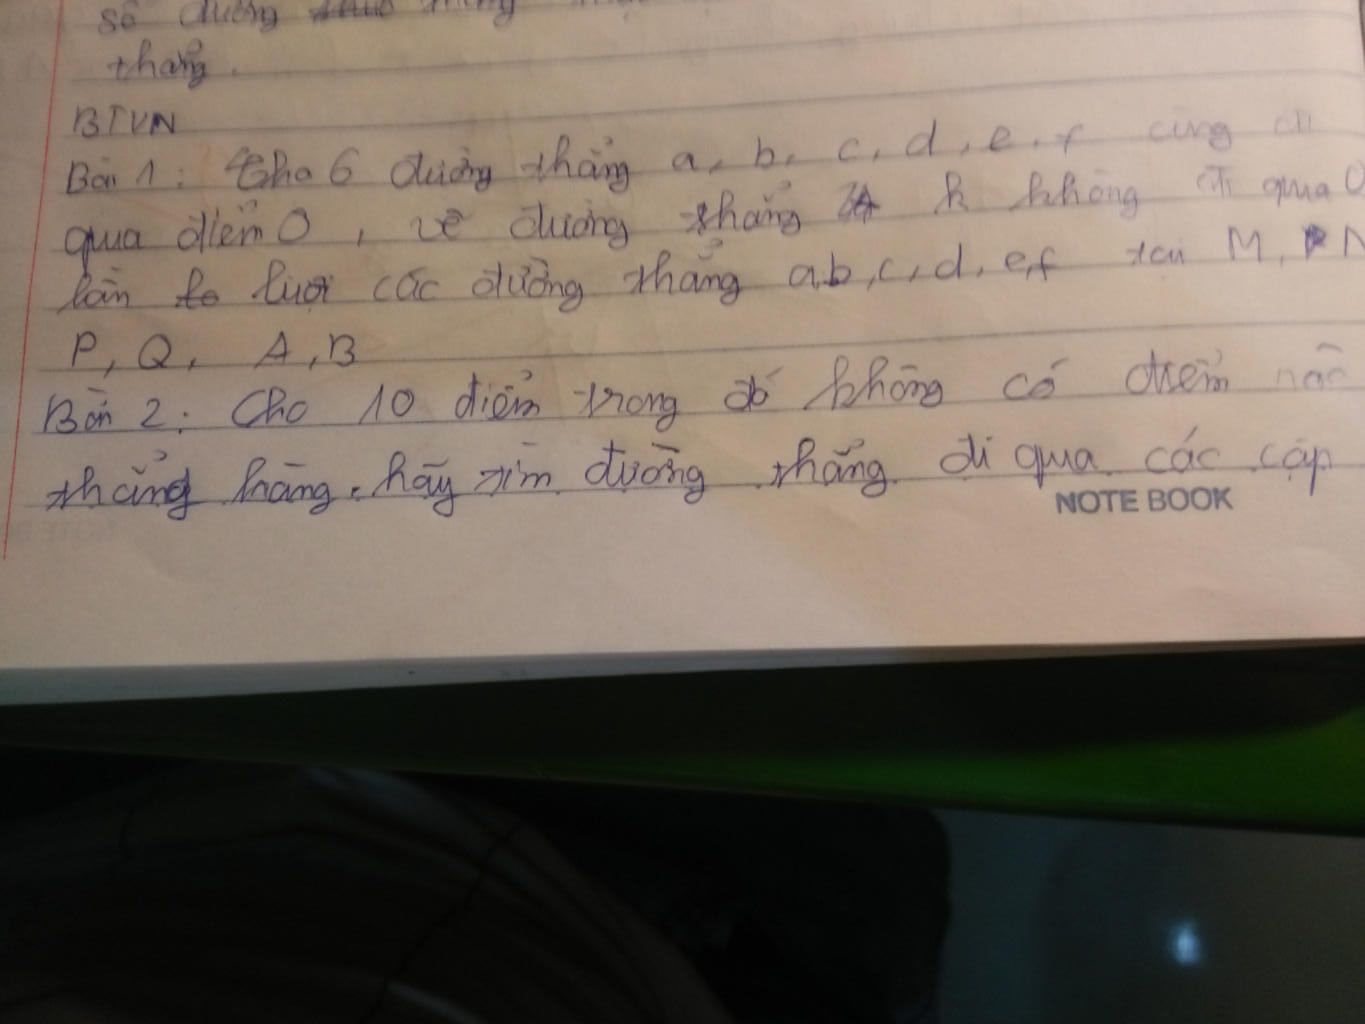 số đường thẳng
thẳng.
BTVN
Bài 1: Cho 6 đường thẳng a, b, c, d, e, f cùng đi
qua điểm O, vẽ đường thẳng k không đi qua O
lần lượt các đường thẳng a,b,c,d,e,f tại M, N
P, Q, A, B
Bài 2: Cho 10 điểm trong đó không có điểm nào
thẳng hàng. hãy tìm đường thẳng đi qua các cặp
NOTE BOOK